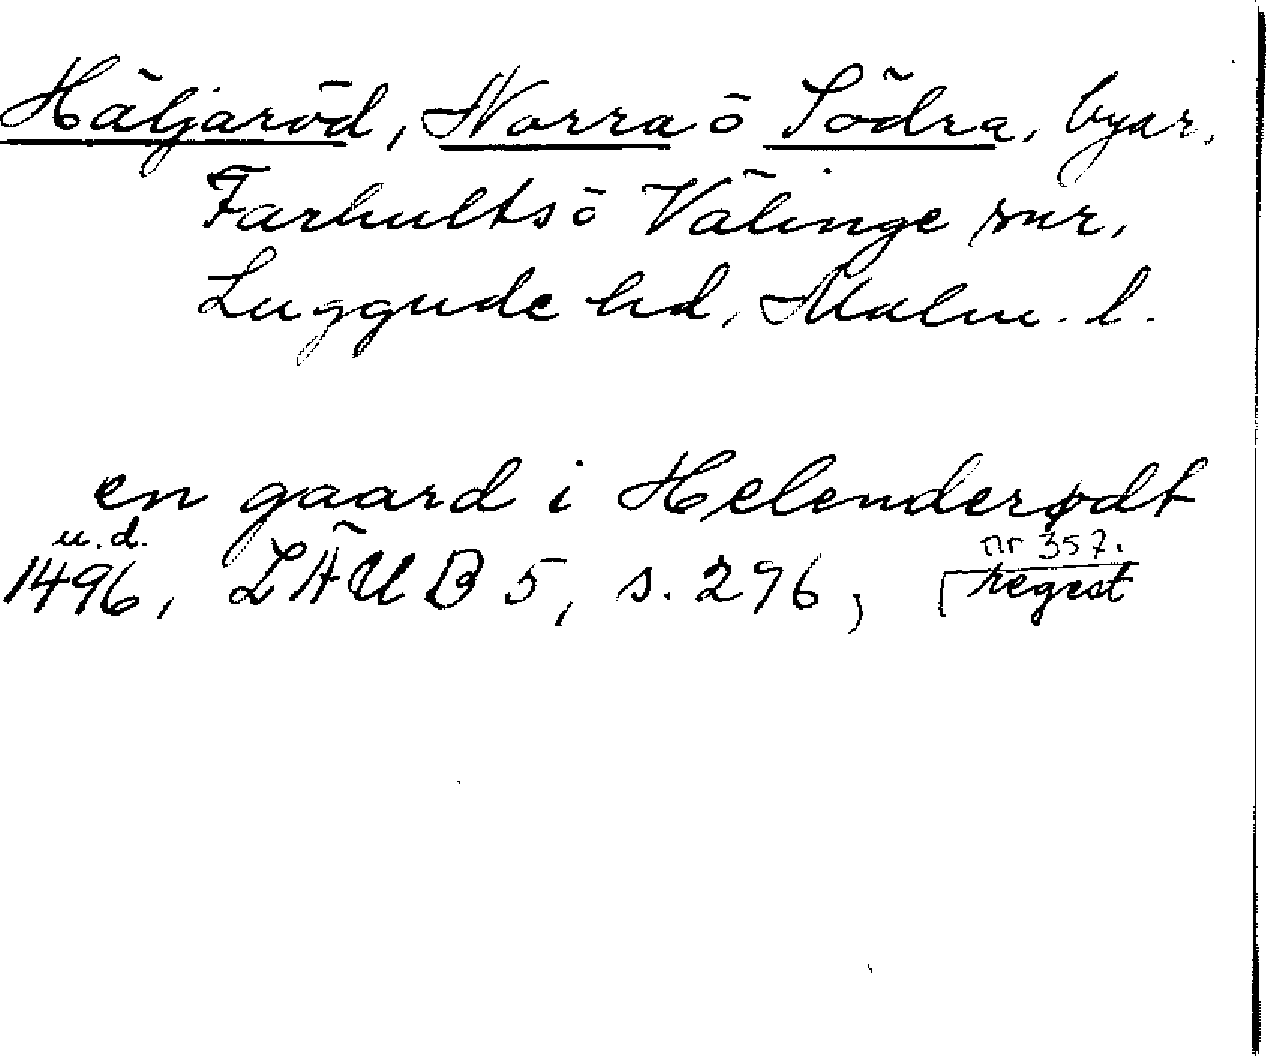 Häljaröd, Norra ö Södra, byar,
Farhults ö Välinge snr,
Luggude hd, Malm. l.
en gaard i Helenderødt
u.d.
1496, LÄUB 5, s. 296,
nr 357.
regest